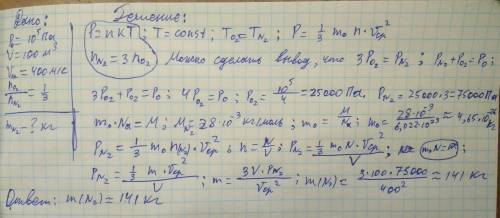 Дано:
P₀ = 10⁵ Па
V = 100 м³
Vкв = 400 м/с
nO₂/nN₂ = 1/3
mN₂ - ? кг
Решение:
P = nкT; T = const; TO₂ = TN₂; P = 1/3 m₀ n · Vср²
nN₂ = 3nO₂ Можно сделать вывод, что 3PO₂ = PN₂; PN₂ + PO₂ = P₀;
3PO₂ + PO₂ = P₀; 4PO₂ = P₀; PO₂ = 10⁵/4 = 25000 Па. PN₂ = 25000·3 = 75000 Па
m₀ · Nа = M; MN₂ = 28·10⁻³ кг/моль; m₀ = M/Nа; m₀ = 28·10⁻³/6,022·10²³ ≈ 4,65·10⁻²⁶ кг
PN₂ = 1/3 m₀ n(N₂) · Vср²; n = N/V; PN₂ = 1/3 · m₀ · N · Vср²/V; m₀N = m;
PN₂ = 1/3 · m · Vср²/V; m = 3V · PN₂/Vср²; m(N₂) = 3·100·75000/400² ≈ 141 кг
Ответ: m(N₂) ≈ 141 кг